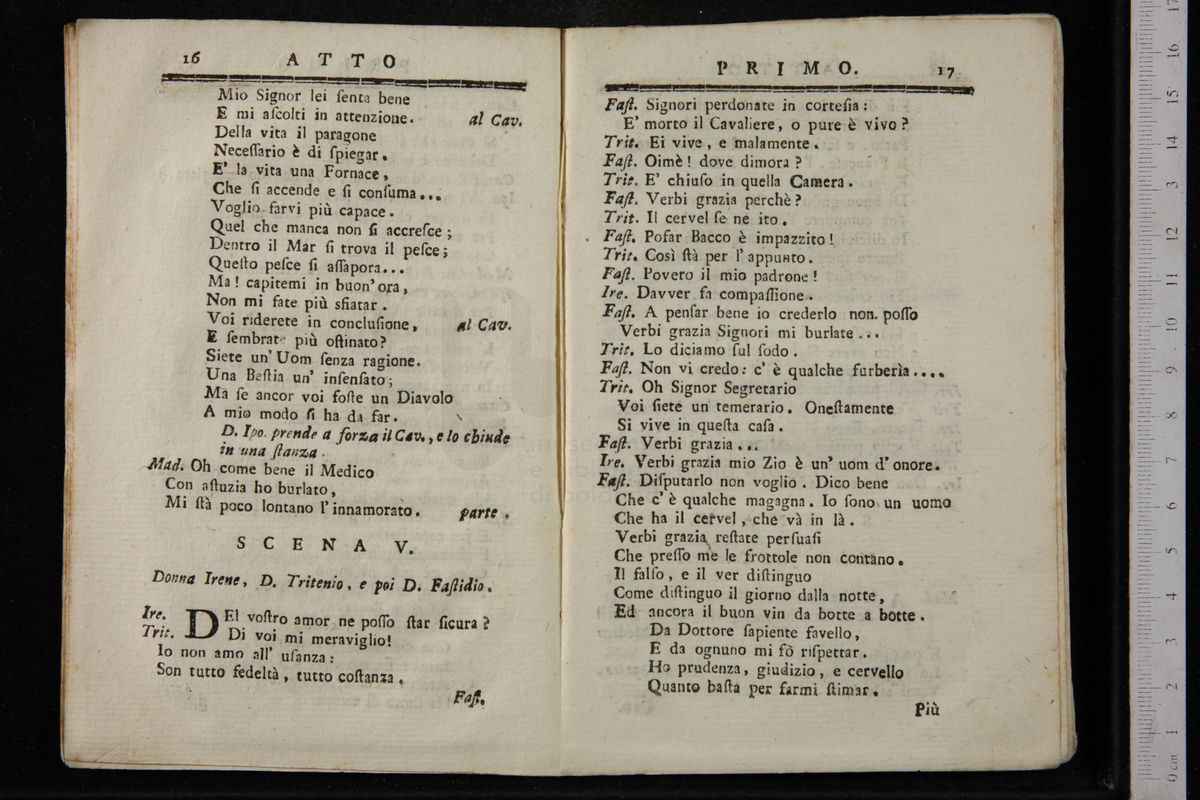 16 ATTO
Mio Signor lei ſenta bene
E mi aſcolti in attenzione. al Cav.
Della vita il paragone
Neceſſario è di ſpiegar.
E' la vita una Fornace,
Che ſi accende e ſi conſuma...
Voglio farvi più capace.
Quel che manca non ſi accreſce;
Dentro il Mar ſi trova il peſce;
Queſto peſce ſi aſſapora...
Ma! capitemi in buon'ora,
Non mi fate più sfiatar.
Voi riderete in concluſione, al Cav.
E ſembrate più oſtinato?
Siete un'Uom ſenza ragione.
Una Beſtia un' inſenſato;
Ma ſe ancor voi foſte un Diavolo
A mio modo ſi ha da far.
D. Ipo. prende a forza il Cav., e lo chiude
in una ſtanza.
Mad. Oh come bene il Medico
Con aſtuzia ho burlato,
Mi ſtà poco lontano l'innamorato. parte.
SCENA V.
Donna Irene, D. Tritenio, e poi D. Faſtidio.
Ire. DEl voſtro amor ne poſſo ſtar ſicura?
Trit. Di voi mi meraviglio!
Io non amo all' uſanza:
Son tutto fedeltà, tutto coſtanza.
Faſt.
PRIMO. 17
Faſt. Signori perdonate in corteſia:
E' morto il Cavaliere, o pure è vivo?
Trit. Ei vive, e malamente.
Faſt. Oimè! dove dimora?
Trit. E' chiuſo in quella Camera.
Faſt. Verbi grazia perchè?
Trit. Il cervel ſe ne ito.
Faſt. Pofar Bacco è impazzito!
Trit. Così ſtà per l'appunto.
Faſt. Povero il mio padrone!
Ire. Davver fa compaſſione.
Faſt. A penſar bene io crederlo non. poſſo
Verbi grazia Signori mi burlate...
Trit. Lo diciamo ſul ſodo.
Faſt. Non vi credo: c' è qualche furberìa....
Trit. Oh Signor Segretario
Voi ſiete un temerario. Oneſtamente
Si vive in queſta caſa.
Faſt. Verbi grazia...
Ire. Verbi grazia mio Zio è un' uom d'onore.
Faſt. Diſputarlo non voglio. Dico bene
Che c'è qualche magagna. Io ſono un uomo
Che ha il cervel, che và in là.
Verbi grazia reſtate perſuaſi
Che preſſo me le frottole non contano.
Il falſo, e il ver diſtinguo
Come diſtinguo il giorno dalla notte,
Ed ancora il buon vin da botte a botte.
Da Dottore ſapiente favello,
E da ognuno mi fò riſpettar.
Ho prudenza, giudizio, e cervello
Quanto baſta per farmi ſtimar.
Più